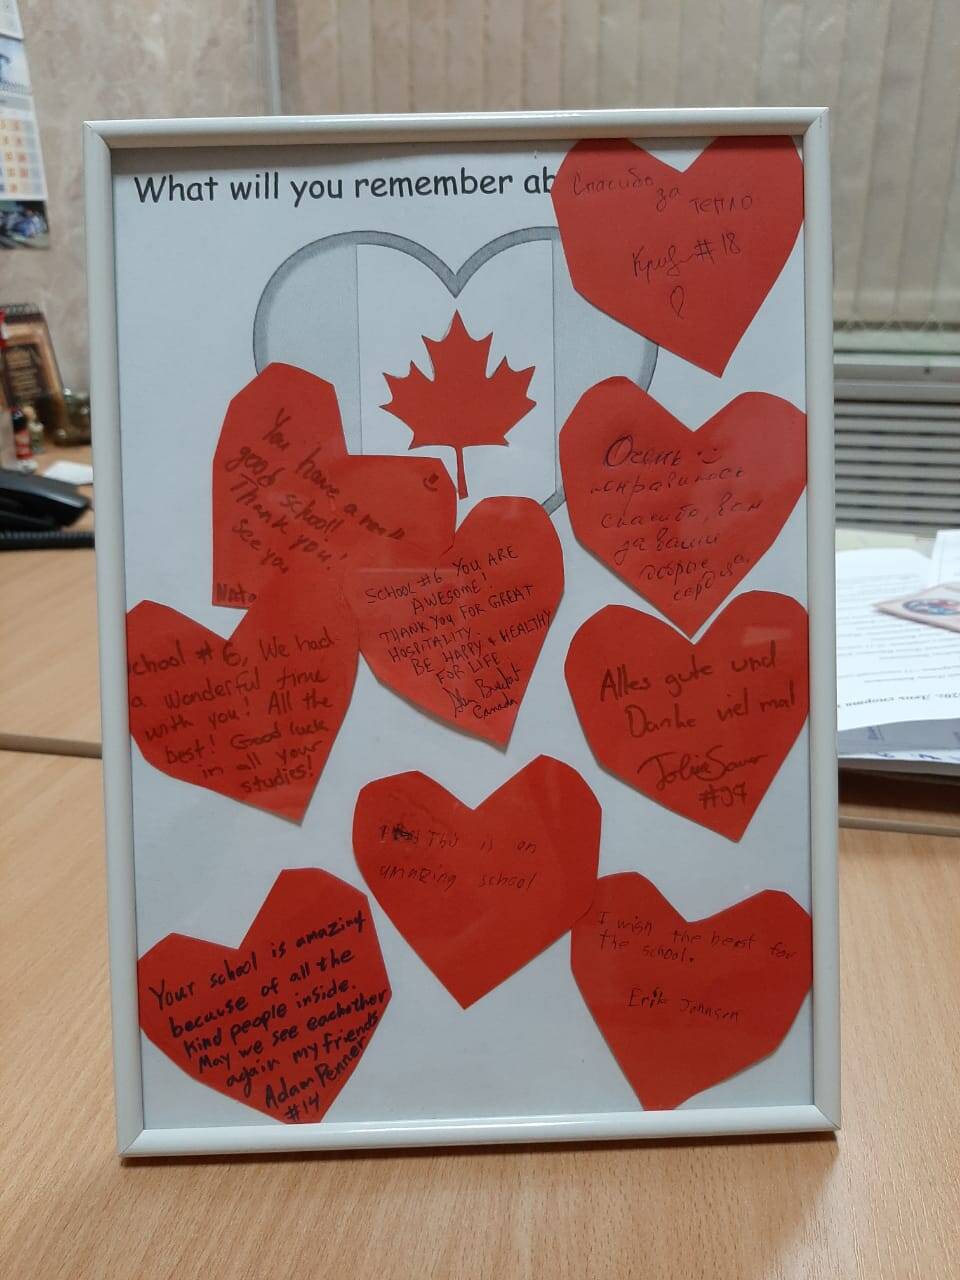 What will you remember ab
Спасибо
за
тепло
#18
You have a
good school!!
Thank you!
see you
Очень
понравилось
спасибо, вам
за ваши
добрые
сердца.
SCHOOL #6 YOU ARE
AWESOME!
THANK YOU FOR GREAT
HOSPITALITY
BE HAPPY & HEALTHY
FOR LIFE
Canada
chool # 6, We had
a wonderful time
with you! All the
best! Good luck
in all your
studies!
Alles gute und
Danke viel mal
#97
This is an
amazing school
Your school is amazing
because of all the
kind people inside.
May we see eachother
again my friends
Adam Penner
#14
I wish the best for
the school.
Erik Johnson